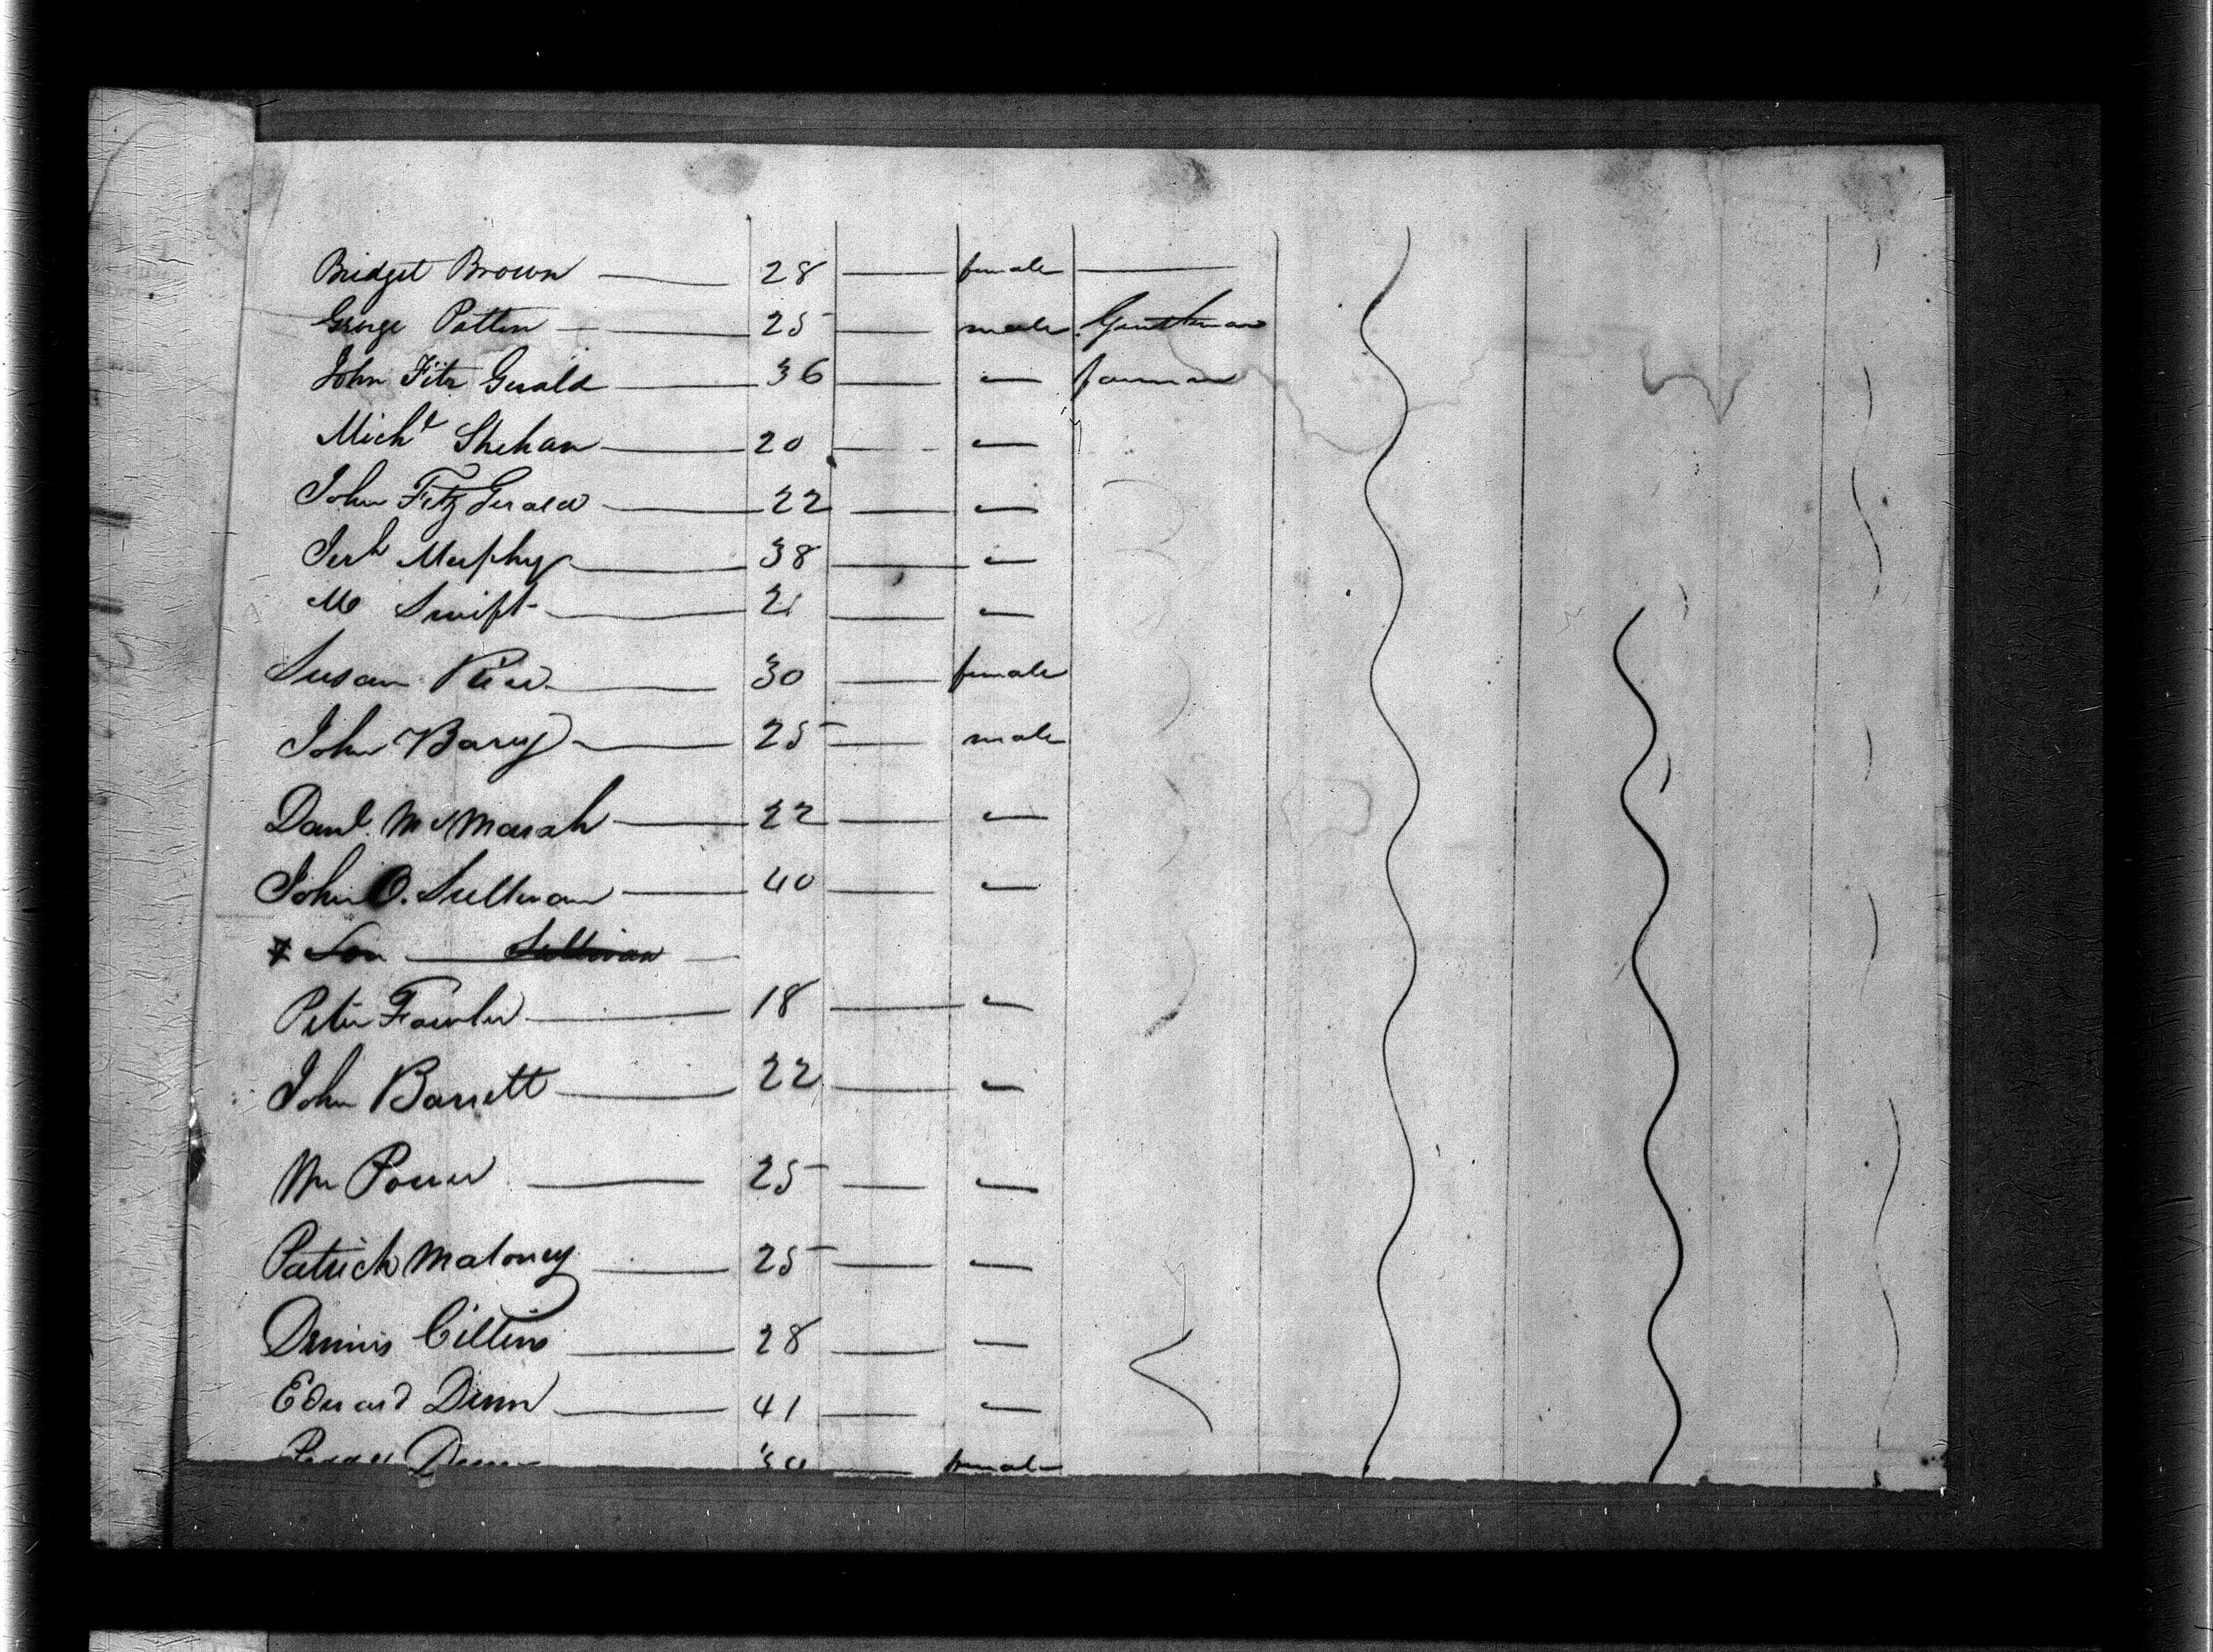 Bridget Brown — 28 — female —
George Patten — 25 — male Gentleman
John Fitz Gerald — 36 — — farmer
Mich^l Shehan — 20 — —
John Fitz Gerald — 22 — —
Jer^h Murphy — 38 — —
M Swift — 21 — —
Susan Rice — 30 — female
John Barry — 25 — male
Danl. — 22 — —
John O. Sullivan — 40 — —
Son — Sullivan —
Peter Fowler — 18 — —
John Barrett — 22 — —
Wm Power — 25 — —
Patrick Maloney — 25 — —
Dennis — 28 — —
Edward Dunn — 41 — —
Dunn — female